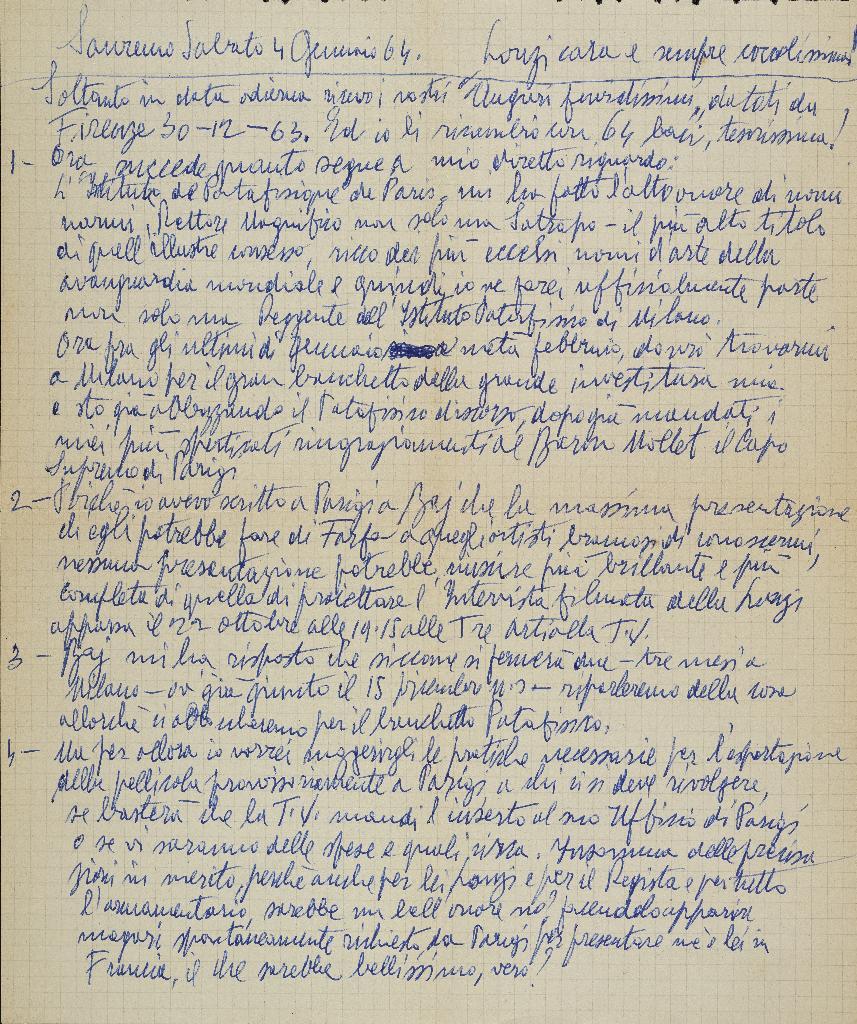 Sanremo Sabato 4 Gennaio 64. Lonzi cara e sempre coccolissima!
Soltanto in data odierna ricevo i vostri "Auguri fervidissimi", datati da
Firenze 30-12-63. Ed io li ricambio con 64 baci, tesorissima!
1- Ora succede quanto segue a mio diretto riguardo:
L'Istituto de Patafisique de Paris, mi ha fatto l'alto onore di nomi
narmi, Rettore Magnifico non solo ma Satrapo - il più alto titolo
di quell'illustre consesso, ricco dei più eccelsi nomi d'arte della
avanguardia mondiale e quindi io ne farei uffisialmente parte
non solo ma Reggente dell'Istituto Patafisico di Milano.
Ora fra gli ultimi di gennaio metà febbraio, dovrò trovarmi
a Milano per il gran banchetto della grande investitura mia
e sto già abbozzando il Patafisico discorso, dopo già mandati i
miei più sperticati ringraziamenti al Baron Mollet il Capo
Supremo di Parigi
2- Poiché io avevo scritto a Parigi a Baj che la massima presentazione
ch'egli potrebbe fare di Farfa a quegli artisti bramosi di conoscermi,
nessuna presentazione potrebbe riuscire più brillante e più
completa di quella di proiettare l'Intervista filmata della Lonzi
apparsa il 22 ottobre alle 19.15 alle Tre Arti alla T.V.
3- Baj mi ha risposto che siccome si fermerà due-tre mesi a
Milano - ov'è già giunto il 15 dicembre - riparleremo della cosa
allorché ci abbracceremo per il banchetto Patafisico.
4- Ma per allora io vorrei suggerirgli le pratiche necessarie per l'esportazione
della pellicola provvisoriamente a Parigi a chi ci si deve rivolgere,
se basterà che la T.V. mandi l'inserto al suo Uffisio di Parigi
o se vi saranno delle spese e quali circa. Insomma delle precisa
zioni in merito, perché anche per lei Lonzi e per il Regista e per tutto
l'armamentario, sarebbe un bell'onore no? facendolo apparire
magari spontaneamente richiesto da Parigi per presentare me e lei in
Francia, il che sarebbe bellissimo, vero?